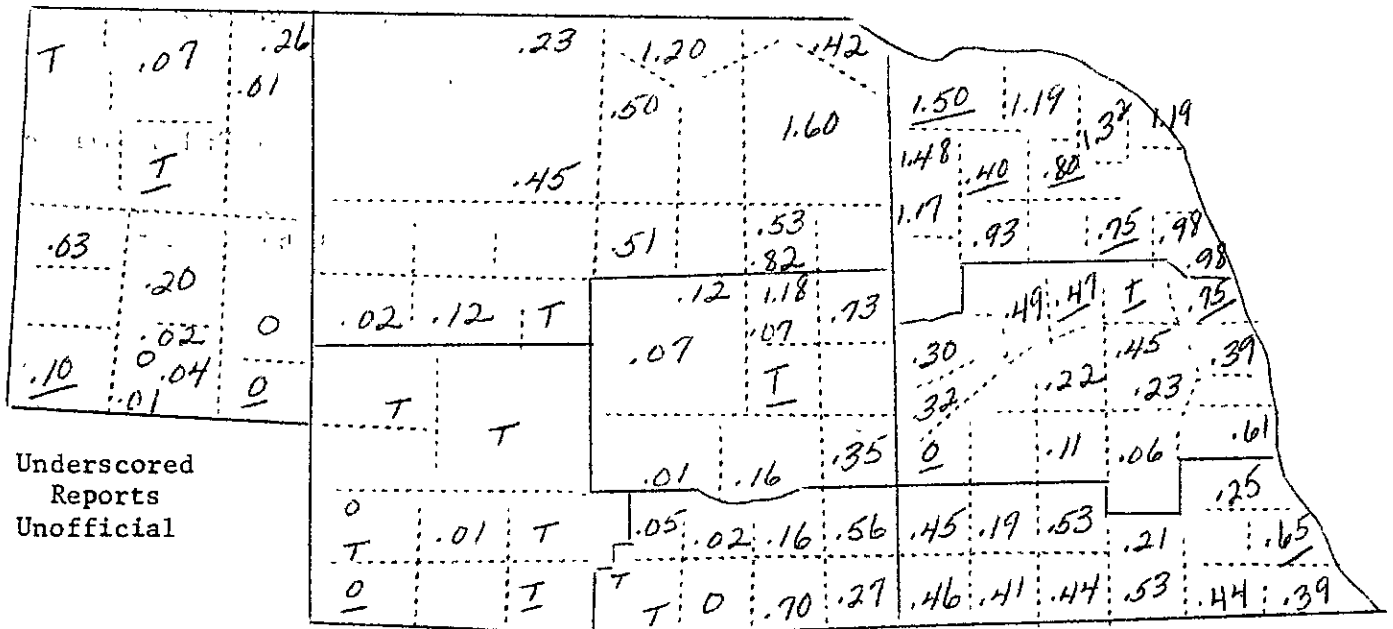 T .07 .26 .23 1.20 .42
.01 .50 1.60 1.50 1.19 1.32 1.19
T .45 1.48 .40 .80
1.17
.03 .51 .53 .93 .75 .98
.20 .82 .98
.02 .12 T .12 1.18 .73 .49 .47 T .75
.02 0 .07 .07 .30 .45 .39
.10 0 .04 0 T T .32 .22 .23
.01 T .01 .16 .35 0 .11 .06 .61
Underscored
Reports
Unofficial
.25
0 .01 T .05 .02 .16 .56 .45 .19 .53 .21 .65
T
0 T T T 0 .70 .27 .46 .41 .44 .53 .44 .39